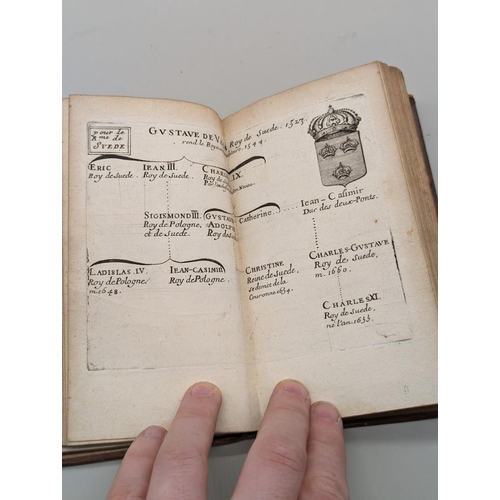 pour le
R.me de
SUEDE
GUSTAVE DE Roy de Suede. 1523.
rend le
1544.
ERIC
Roy de Suede.
JEAN III.
Roy de Suede.
IX.
Roy de
SIGISMOND III.
Roy de Pologne,
et de Suede.
GUSTAVE
ADOLFE
Roy de
Catherine.
Jean-Casimir
Duc des deux-Ponts.
LADISLAS. IV.
Roy de Pologne
m. 1648.
JEAN-CASIMIR
Roy de Pologne.
CHRISTINE
Reine de Suede,
se dimit de la
Couronne 1654.
CHARLES-GUSTAVE
Roy de Suede,
m. 1660.
CHARLES XI.
Roy de Suede,
né l'an. 1655.